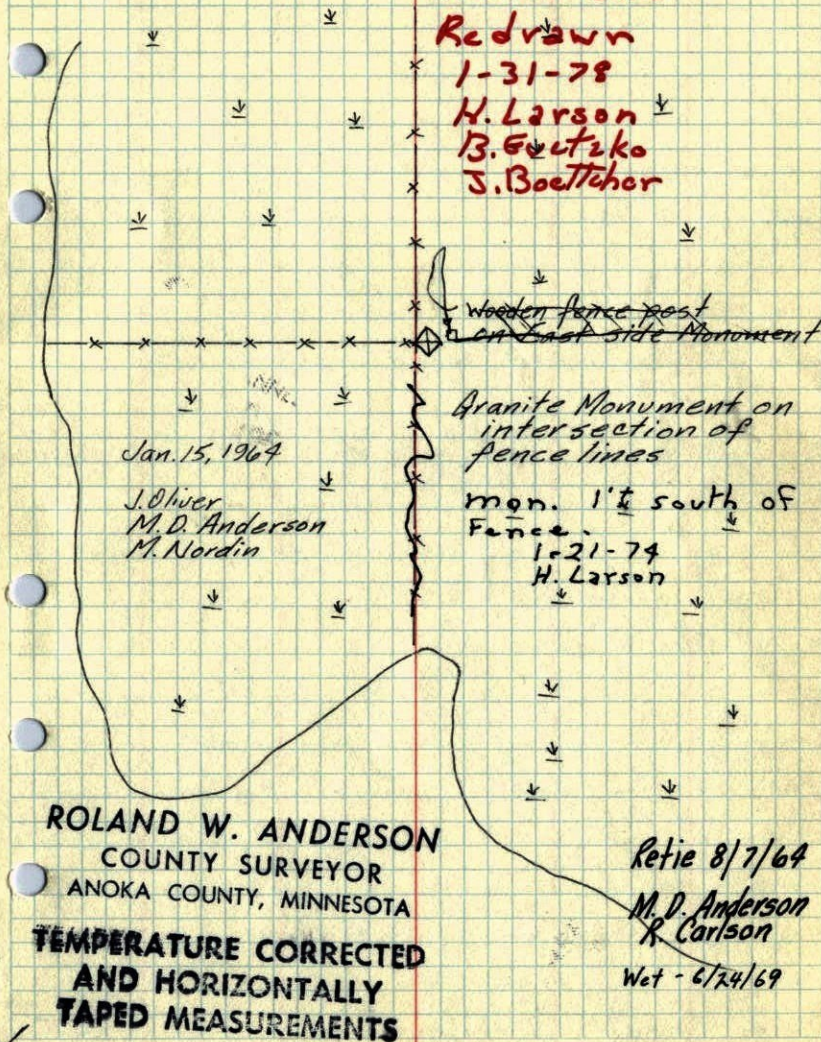 Redrawn
1-31-78
H. Larson
B.
J. Boettcher
Wooden fence post
on East side Monument
Granite Monument on
intersection of
fence lines
mon. 1'± south of
Fence.
1-21-74
H. Larson
Jan. 15, 1964
J. Oliver
M. D. Anderson
M. Nordin
ROLAND W. ANDERSON
COUNTY SURVEYOR
ANOKA COUNTY, MINNESOTA
TEMPERATURE CORRECTED
AND HORIZONTALLY
TAPED MEASUREMENTS
Retie 8/7/64
M. D. Anderson
R. Carlson
Wet - 6/24/69